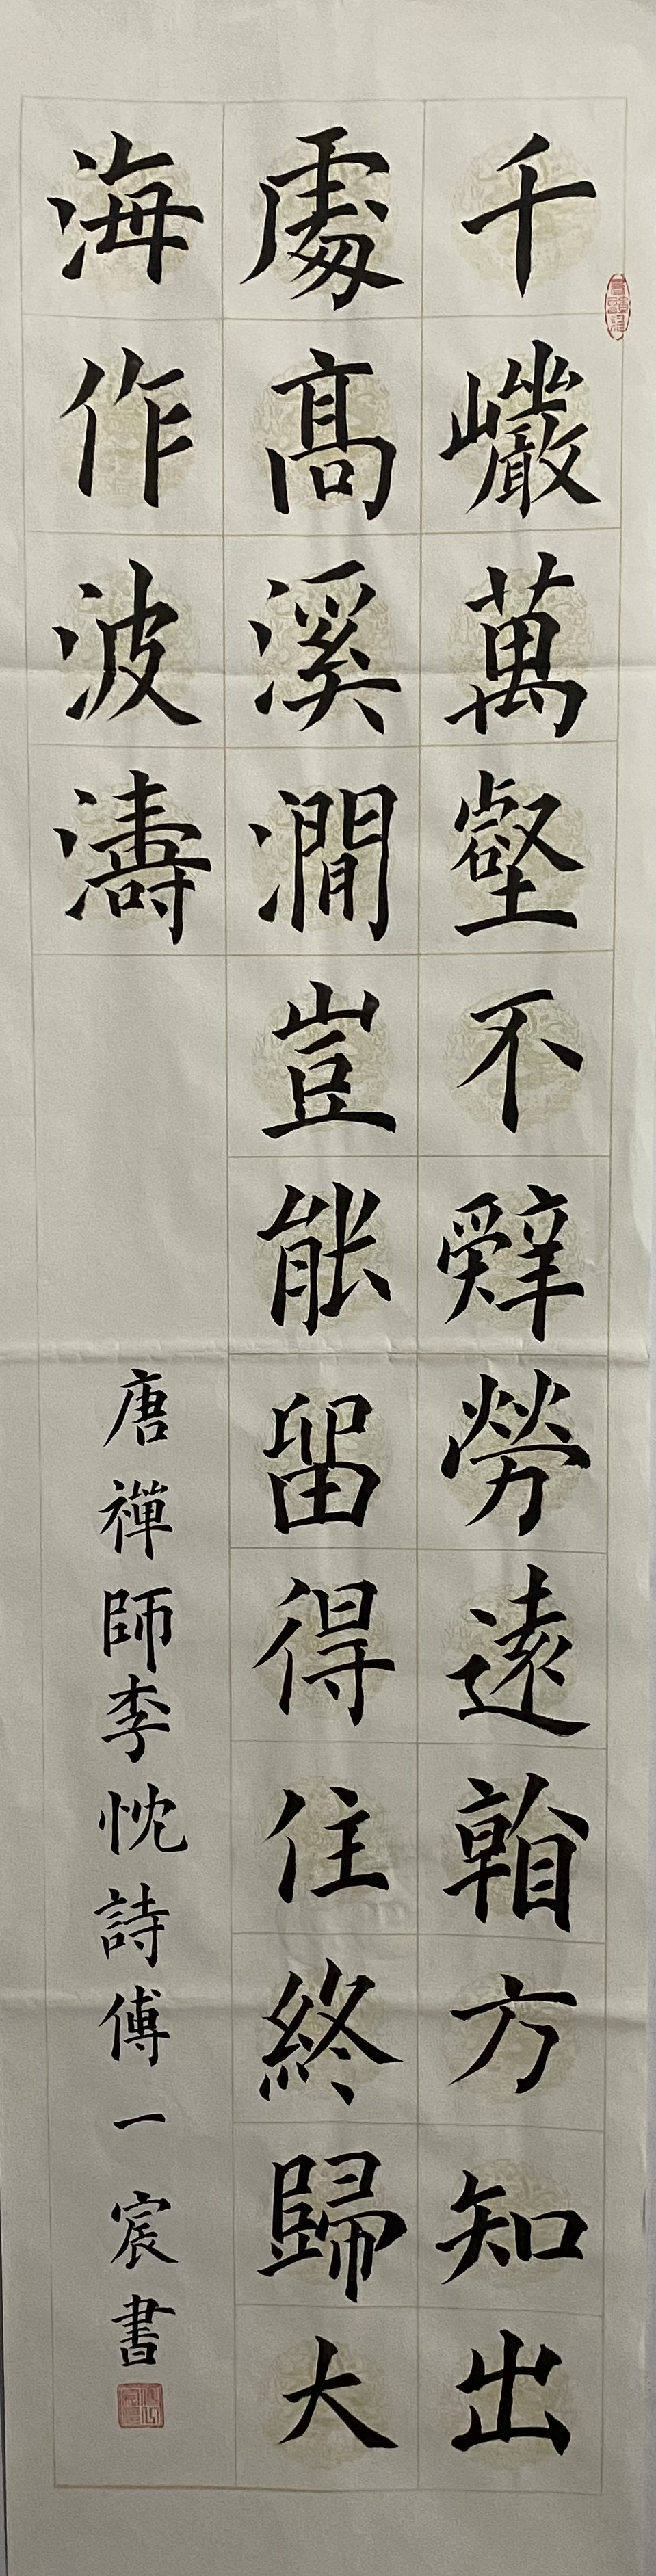 千巖萬壑不辭勞遠看方知出
處高溪澗豈能留得住終歸大
海作波濤
唐禪師李忱詩傅一宸書